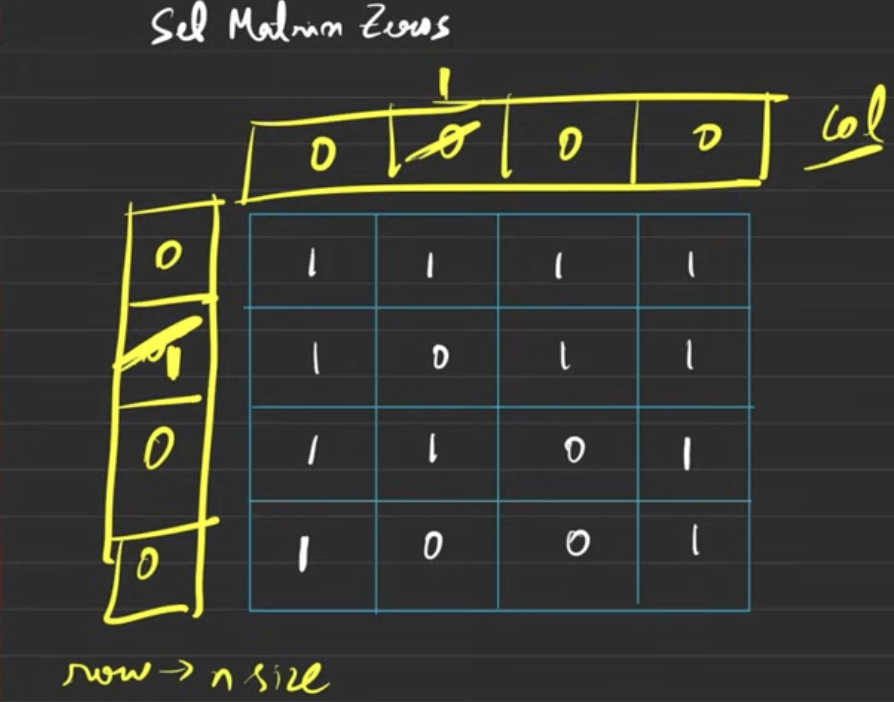 Set Matrix Zeros
1
0 0 0 0 col
0 1 1 1 1
0 1 1 0 1 1
0 1 1 0 1
0 1 0 0 1
row → n size